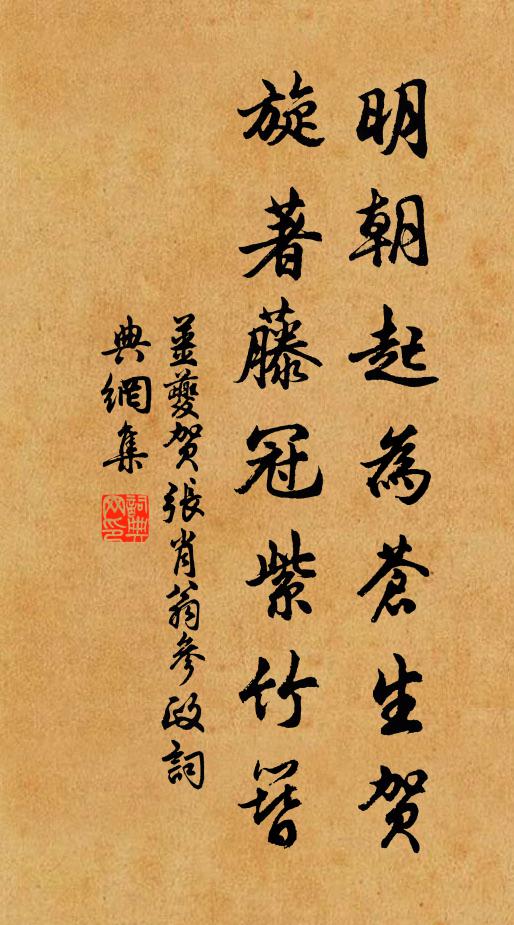 明朝起為蒼生賀
旋著藤冠紫竹簪
姜夔賀張肖翁參政詞
典網集
詞典網印